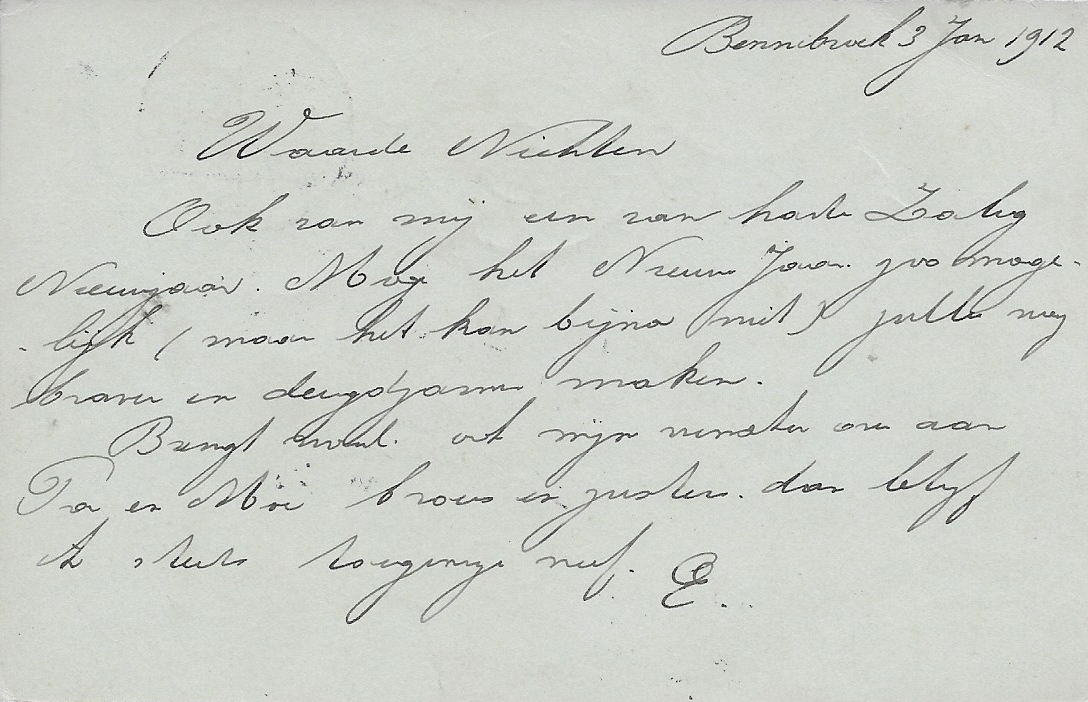 Bennebroek 3 Jan 1912
Waarde Nichten
Ook van mij een van harte Zalig
Nieuwjaar. Moge het Nieuwe Jaar. zoo moge-
- lijk (maar het kan bijna niet) jullie nog
braver en deugdzamer maken.
Brengt svul. ook mijn wenschen over aan
Pa en Moe broers en zusters. dan blijf
ik steeds toegenegen neef. E...